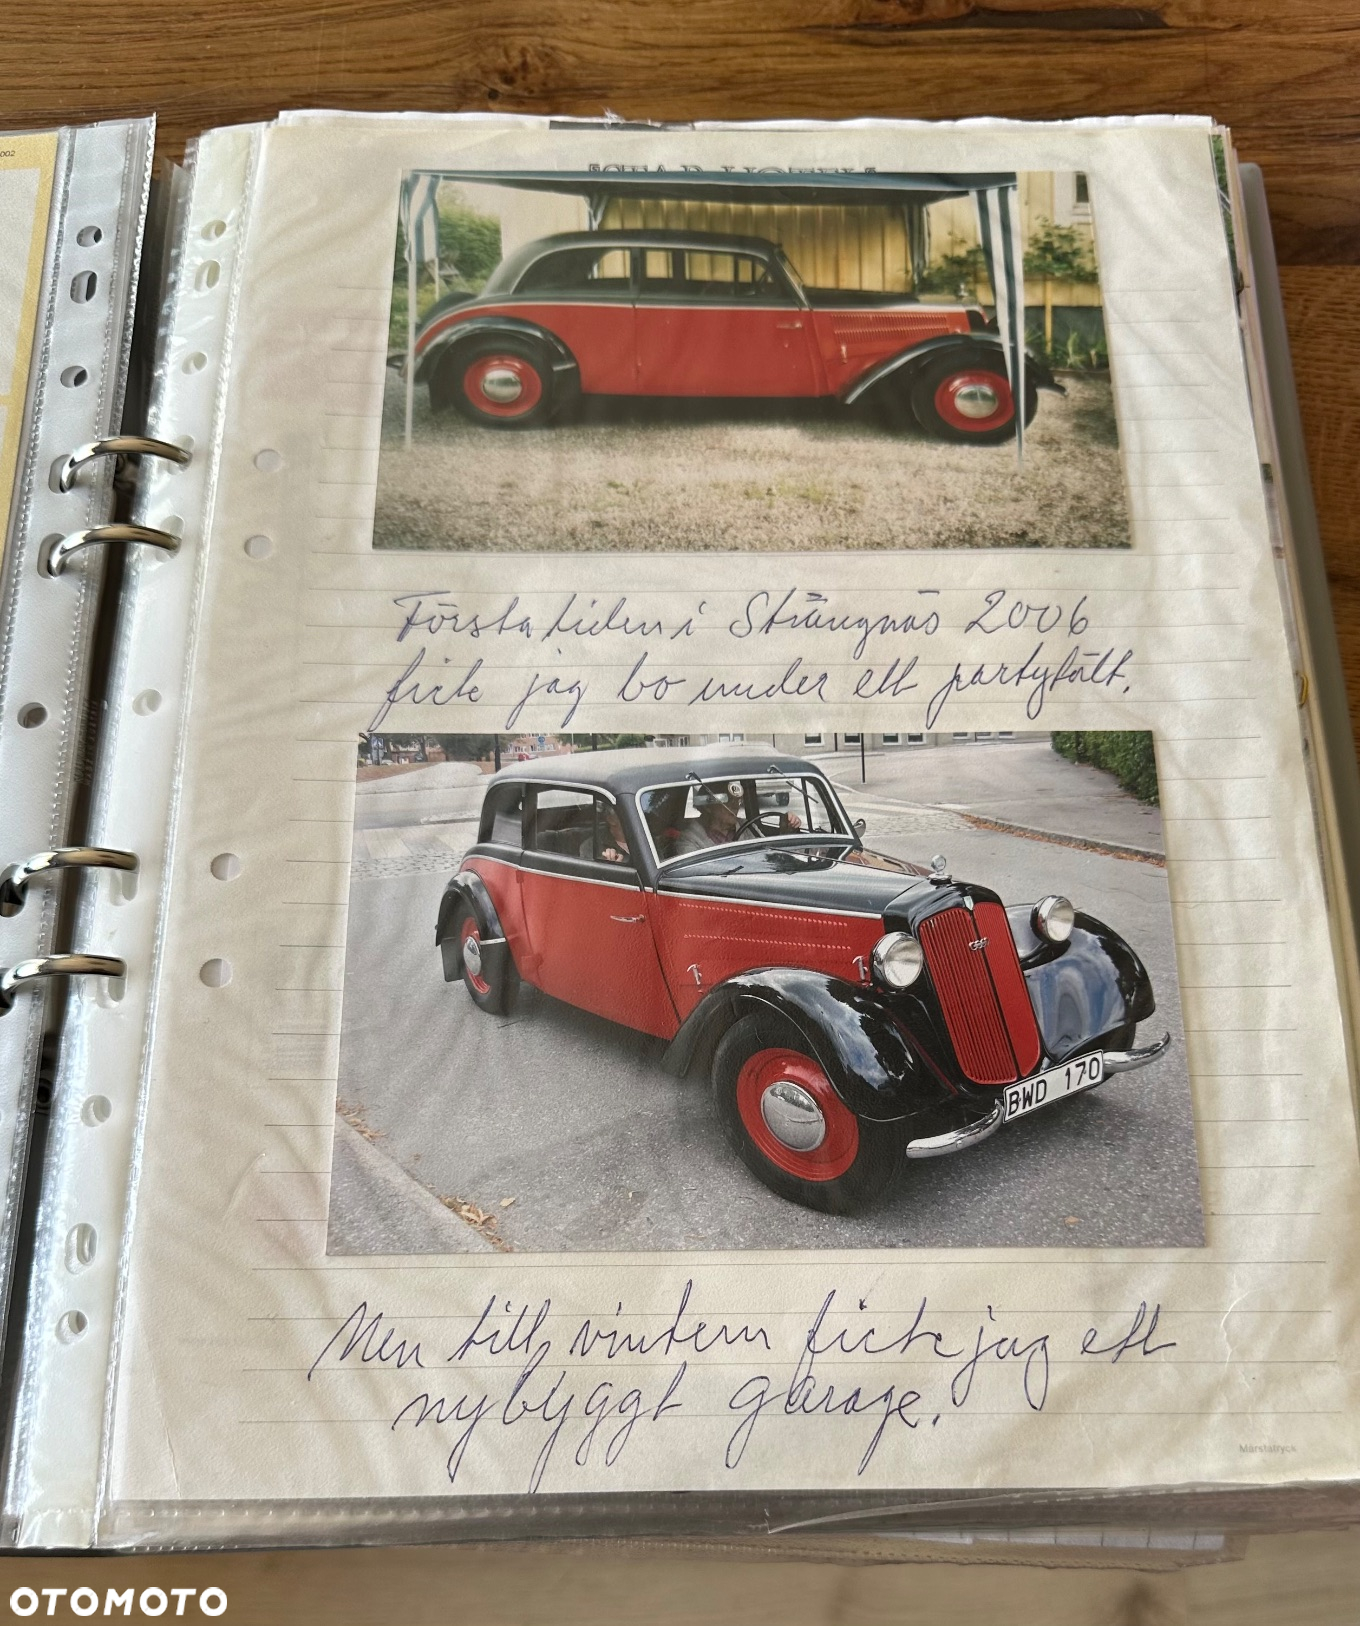 002
STAR HOTEL
Första tiden i Strängnäs 2006
fick jag bo under ett partytält.
BWD 170
Men till vintern fick jag ett
nybyggt garage.
Märstatryck
OTOMOTO